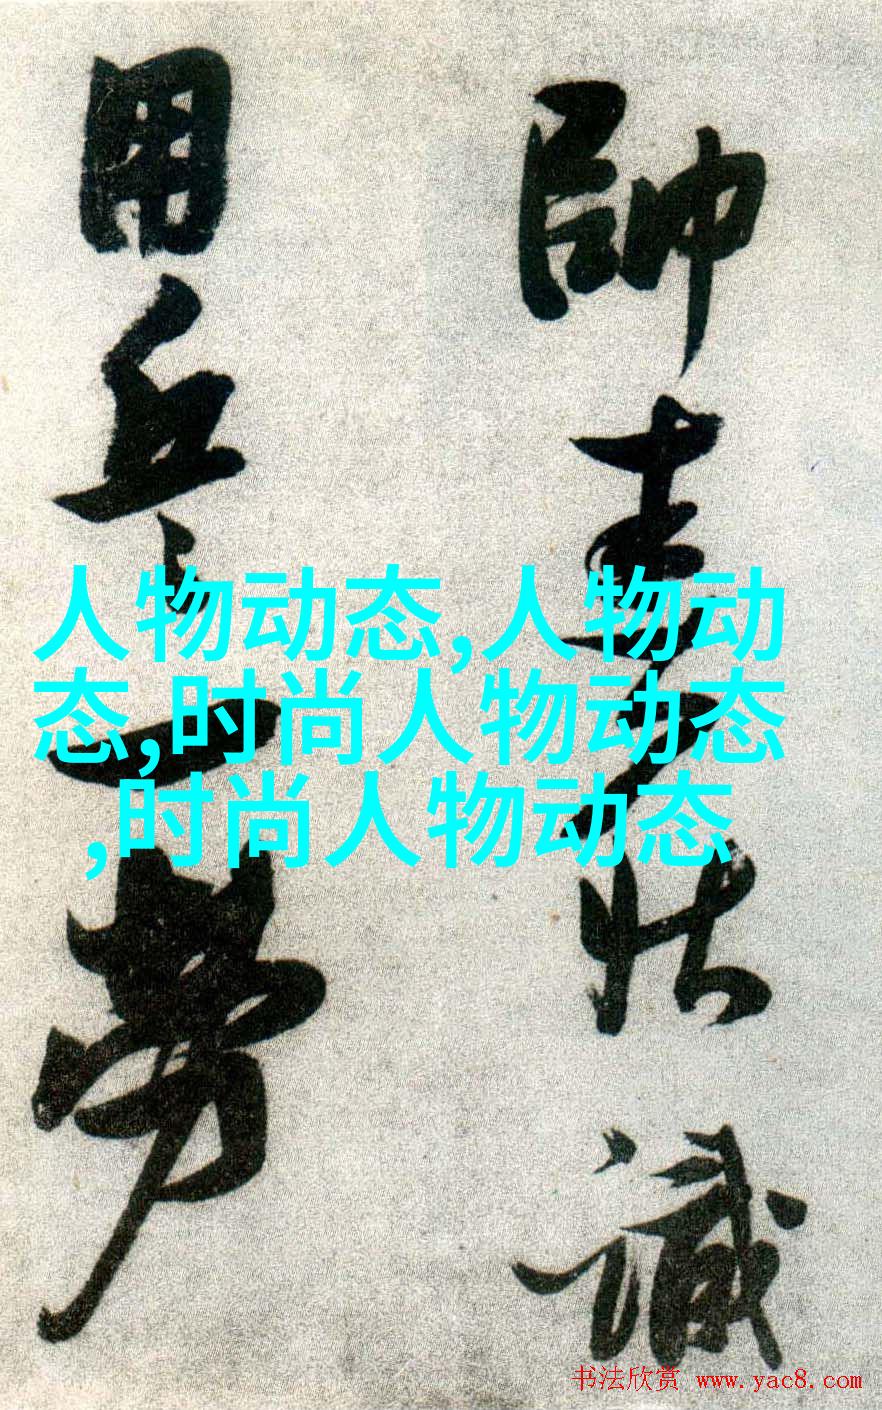 帥 識
用兵 一
人物动态,人物动
态,时尚人物动态
,时尚人物动态
书法欣赏 www.yac8.com